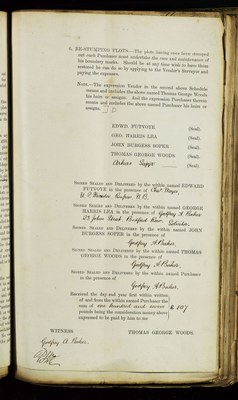 6. RE-STUMPING PLOTS.—The plots having been stumped
out each Purchaser must undertake the care and maintenance of
his boundary marks. Should he at any time wish to have them
restored he can do so by applying to the Vendor's Surveyor and
paying the expenses.
NOTE.—The expression Vendor in the second above Schedule
means and includes the above named Thomas George Woods
his heirs or assigns. And the expression Purchaser therein
means and includes the above named Purchaser his heirs or
assigns.
EDWD. PUTVOYE (Seal).
GEO. HARRIS LEA (Seal).
JOHN BURGESS SOPER (Seal).
THOMAS GEORGE WOODS (Seal).
(Seal).
SIGNED SEALED AND DELIVERED by the within named EDWARD
PUTVOYE in the presence of
SIGNED SEALED AND DELIVERED by the within named GEORGE
HARRIS LEA in the presence of Godfrey A. Baker
SIGNED SEALED AND DELIVERED by the within named JOHN
BURGESS SOPER in the presence of
Godfrey A. Baker.
SIGNED SEALED AND DELIVERED by the within named THOMAS
GEORGE WOODS in the presence of
Godfrey A. Baker.
SIGNED SEALED AND DELIVERED by the within named Purchaser
in the presence of
Godfrey A. Baker.
Received the day and year first within written
of and from the within named Purchaser the
sum of one hundred and seven £ 107
pounds being the consideration money above
expressed to be paid by him to me
WITNESS THOMAS GEORGE WOODS.
Godfrey A. Baker.